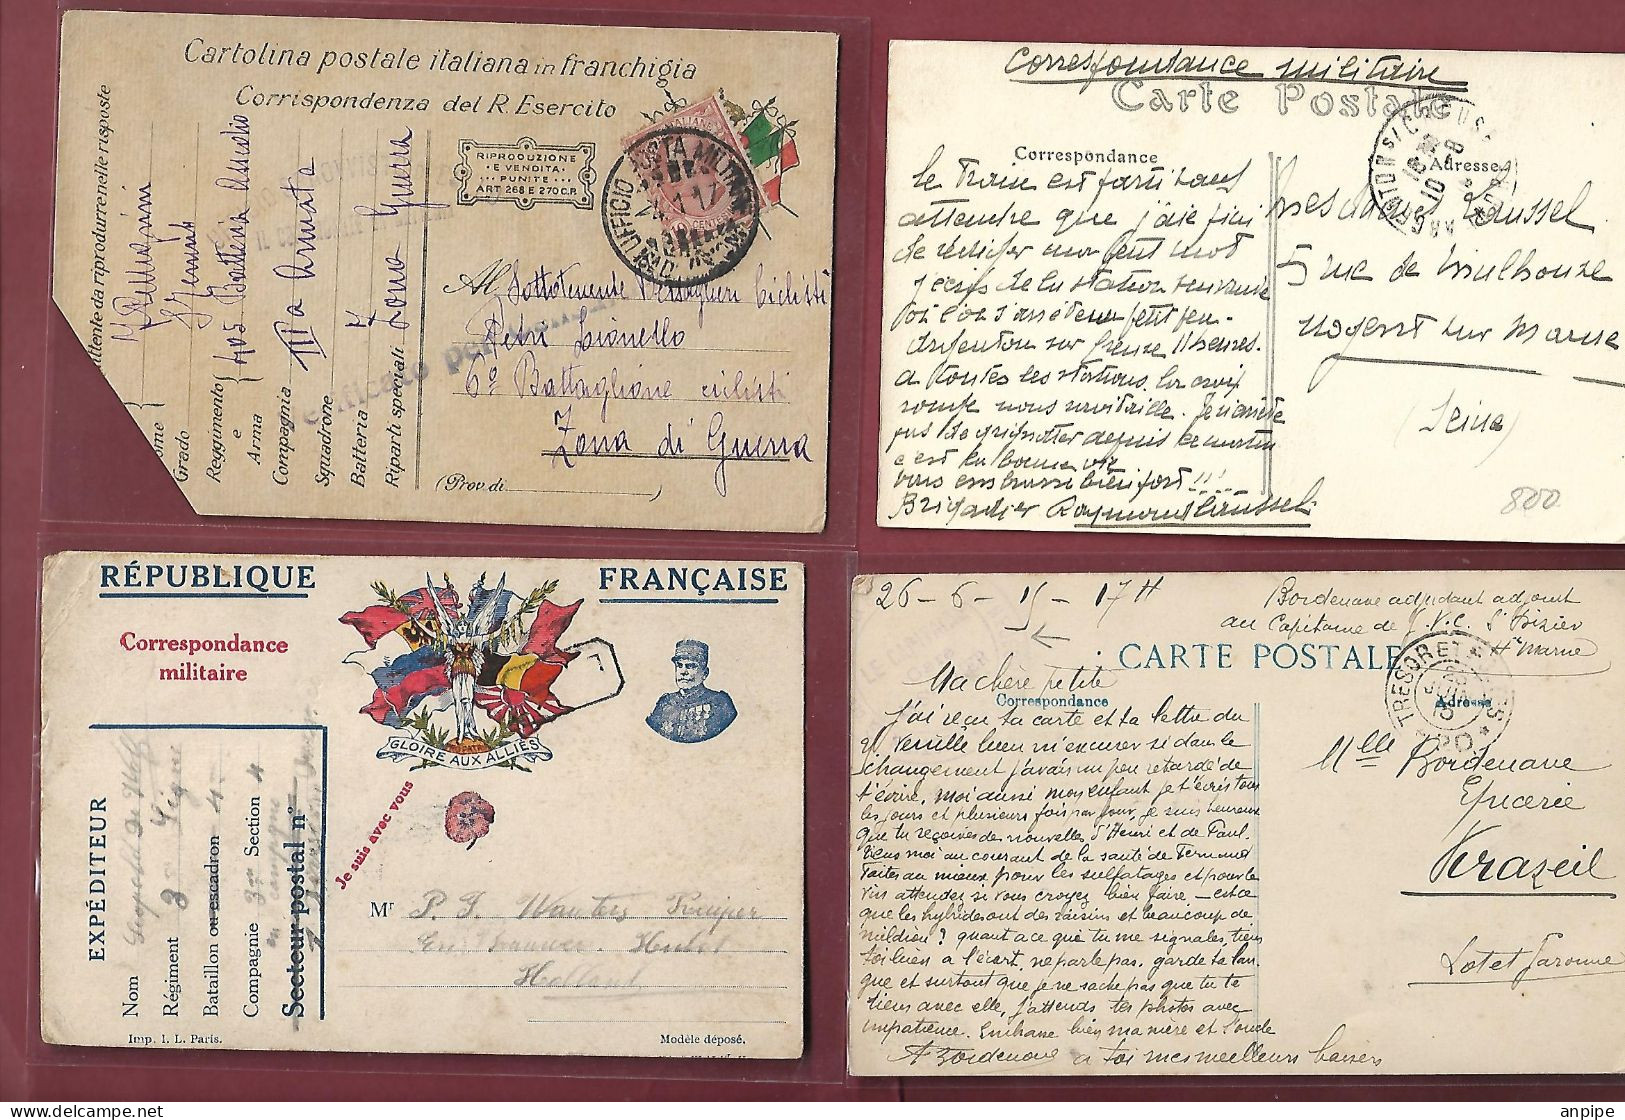 Cartolina postale italiana in franchigia
Corrispondenza del R. Esercito
RIPRODUZIONE
E VENDITA
PUNITE
ART 268 E 270 C.P.
UFFICIO POSTA MILITARE
24.1.17
Grado
Reggimento
e
Arma
405 Batteria
Compagnia
IIIa Armata
Squadrone
Batteria
Riparti speciali
Zona Guerra
Al Sottotenente Bersaglieri Ciclisti
Petri Lionello
6º Battaglione ciclisti
Zona di Guerra
(Prov. di
)
Correspondance militaire
Carte Postale
Correspondance
Adresse
Le train est parti sans
attendre que j'aie fini
de rédiger mon petit mot
j'écris de la station suivante
où l'on s'arrête un petit peu.
Argenton sur Creuse 11 heures.
a toutes les stations la croix
rouge nous ravitaille. Je n'arrête
pas de grignotter depuis ce matin
c'est la bonne vie
vous embrasse bien fort!!!
Brigadier Raymond Laussel
Mesdames Laussel
5 rue de Mulhouse
Nogent sur Marne
(Seine)
800
RÉPUBLIQUE FRANÇAISE
Correspondance
militaire
GLOIRE AUX ALLIÉS
Je suis avec vous
EXPÉDITEUR
Nom
Régiment 3
Bataillon ou escadron 4
Compagnie 3 Section 4
en campagne
Secteur postal n°
Mr P. J. Wauters
Holland
Imp. I. L. Paris.
Modèle déposé.
26-6-15-17H
Bordenave adjudant adjoint
au Capitaine de G.V.C. St Dizier
Hte Marne
CARTE POSTALE
Correspondance
Adresse
TRESOR ET POSTES
Ma chère petite
J'ai reçu ta carte et ta lettre du
21. Veuille bien m'excuser si dans le
changement j'avais un peu retardé de
t'écrire, moi aussi mon enfant je t'écris tous
les jours et plusieurs fois par jour, je suis heureux
que tu reçoives de nouvelles d'Henri et de Paul.
Tiens moi au courant de la santé de Fernand
Faites au mieux pour les sulfatages et pour le
vin attendez si vous croyez bien faire, - est-ce
que les hybrides ont des raisins et beaucoup de
mildiou? quant a ce que tu me signales, tiens
toi bien a l'écart, ne parle pas, garde ta lan
gue et surtout que je ne sache pas que tu te
tiens avec elle, j'attends tes photos avec
impatience. Embrasse bien ma mère et l'oncle
A Bordenave a toi mes meilleurs baisers
Mlle Bordenave
Epicerie
Virazeil
Lot et Garonne
anpipe
delcampe.net